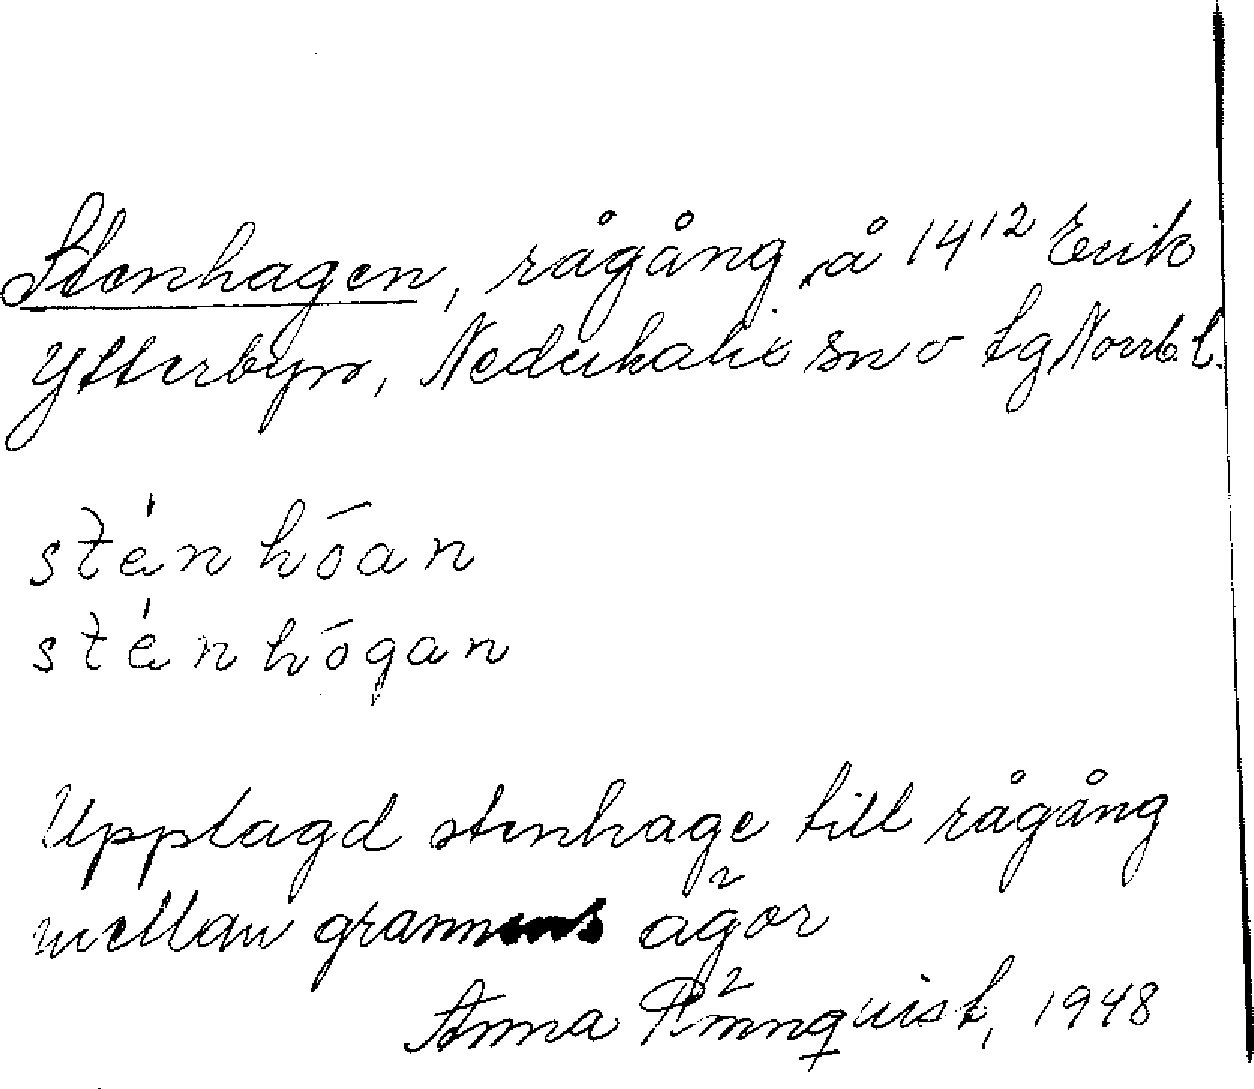 Stenhagen, rågång å 14¹² Erik
Ytterbyn, Nederkalix sn o tg Norrb. l.
sténhōan
sténhōgan
Upplagd stenhage till rågång
mellan grannens ägor
Anna Rönnquist, 1948